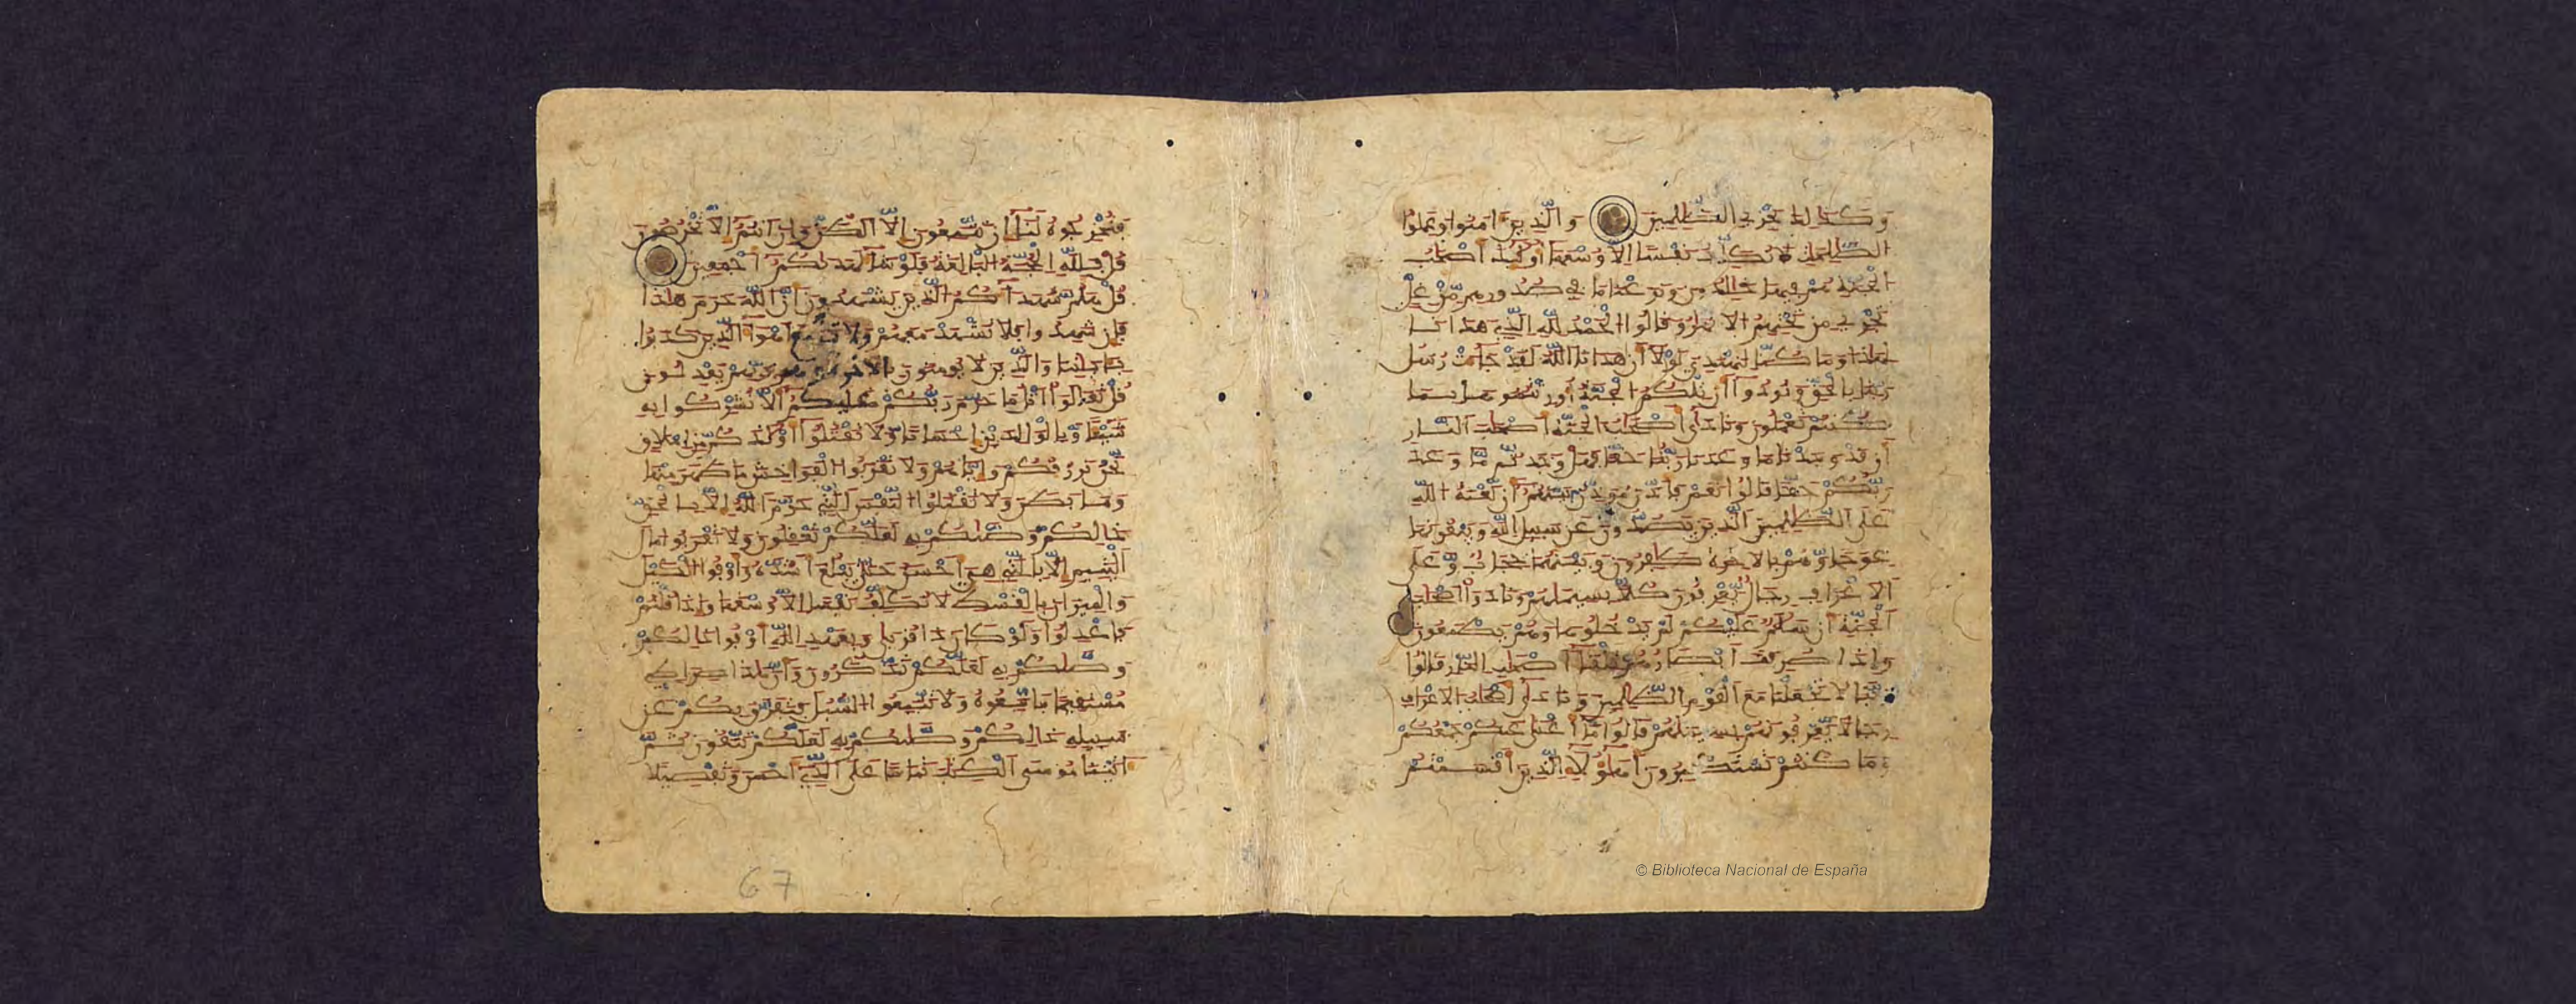 وكذلك نجزي الظلمين والذين امنوا وعملوا
الصلحت لا نكلف نفسا الا وسعها اولئك اصحب
الجنة هم فيها خلدون ونزعنا ما في صدورهم من غل
تجري من تحتهم الانهر وقالوا الحمد لله الذي هدانا
لهذا وما كنا لنهتدي لولا ان هدانا الله لقد جات رسل
ربنا بالحق ونودوا ان تلكم الجنة اورثتموها بما
كنتم تعملون ونادى اصحب الجنة اصحب النار
ان قد وجدنا ما وعدنا ربنا حقا فهل وجدتم ما وعد
ربكم حقا قالوا نعم فاذن موذن بينهم ان لعنة الله
على الظلمين الذين يصدون عن سبيل الله ويبغونها
عوجا وهم بالاخرة كفرون وبينهما حجاب وعلى
الاعراف رجال يعرفون كلا بسيمهم ونادوا اصحب
الجنة ان سلم عليكم لم يدخلوها وهم يطمعون
واذا صرفت ابصرهم تلقا اصحب النار قالوا
ربنا لا تجعلنا مع القوم الظلمين ونادى اصحب الاعراف
رجالا يعرفونهم بسيمهم قالوا ما اغنى عنكم جمعكم
وما كنتم تستكبرون اهؤلا الذين اقسمتم
فتخرجوه لنا ان تتبعون الا الظن وان انتم الا تخرصون
قل فلله الحجة البلغة فلو شا لهديكم اجمعين
قل هلم شهداكم الذين يشهدون ان الله حرم هذا
فان شهدوا فلا تشهد معهم ولا تتبع اهوا الذين كذبوا
بايتنا والذين لا يومنون بالاخرة وهم بربهم يعدلون
قل تعالوا اتل ما حرم ربكم عليكم الا تشركوا به
شيا وبالولدين احسانا ولا تقتلوا اولدكم من املق
نحن نرزقكم واياهم ولا تقربوا الفواحش ما ظهر منها
وما بطن ولا تقتلوا النفس التي حرم الله الا بالحق
ذالكم وصيكم به لعلكم تعقلون ولا تقربوا مال
اليتيم الا بالتي هي احسن حتى يبلغ اشده واوفوا الكيل
والميزان بالقسط لا نكلف نفسا الا وسعها واذا قلتم
فاعدلوا ولو كان ذا قربى وبعهد الله اوفوا ذالكم
وصيكم به لعلكم تذكرون وان هذا صراطي
مستقيما فاتبعوه ولا تتبعوا السبل فتفرق بكم عن
سبيله ذالكم وصيكم به لعلكم تتقون ثم
اتينا موسى الكتب تماما على الذي احسن وتفصيلا
67
© Biblioteca Nacional de España